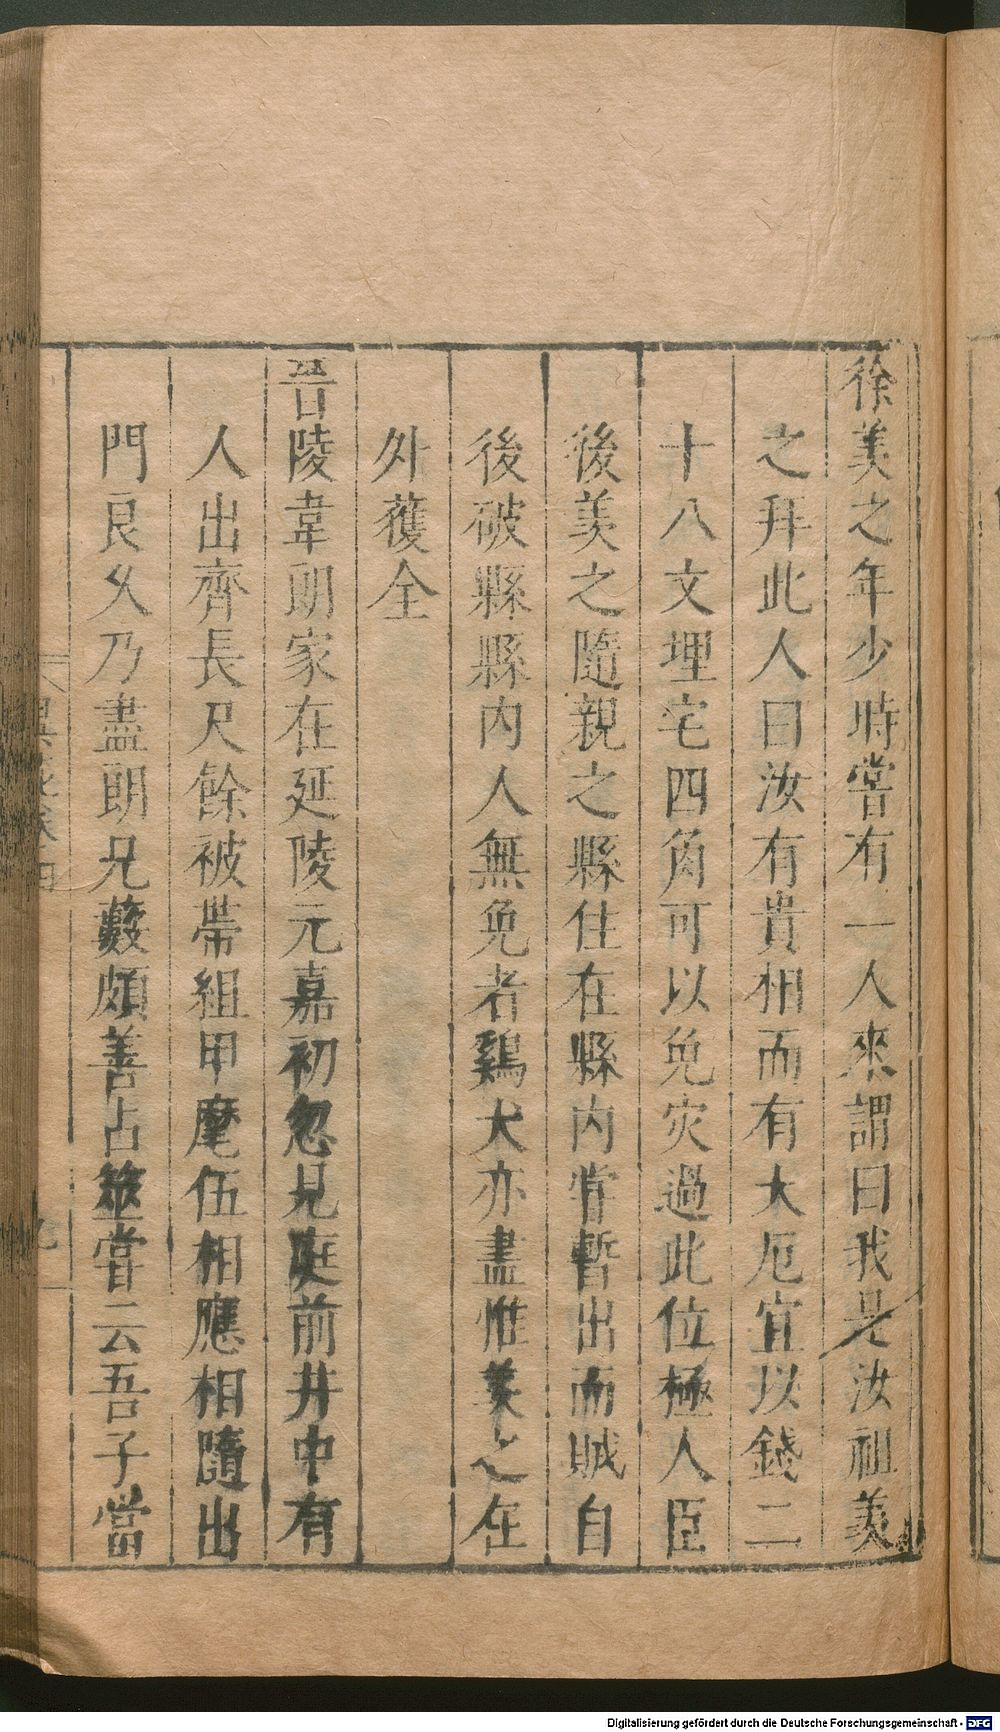 徐羡之年少時嘗有一人來謂曰我是汝祖羡
之拜此人曰汝有貴相而有大厄宜以錢二
十八文埋宅四角可以免灾過此位極人臣
後羡之隨親之縣住在縣內嘗暫出而賊自
後破縣縣內人無免者鷄犬亦盡惟羡之在
外獲全
晉陵韋朗家在延陵元嘉初忽見庭前井中有
人出齊長尺餘被帶組甲麾伍相應相隨出
門良久乃盡朗兄藪頗善占筮嘗云吾子當
Digitalisierung gefördert durch die Deutsche Forschungsgemeinschaft - DFG